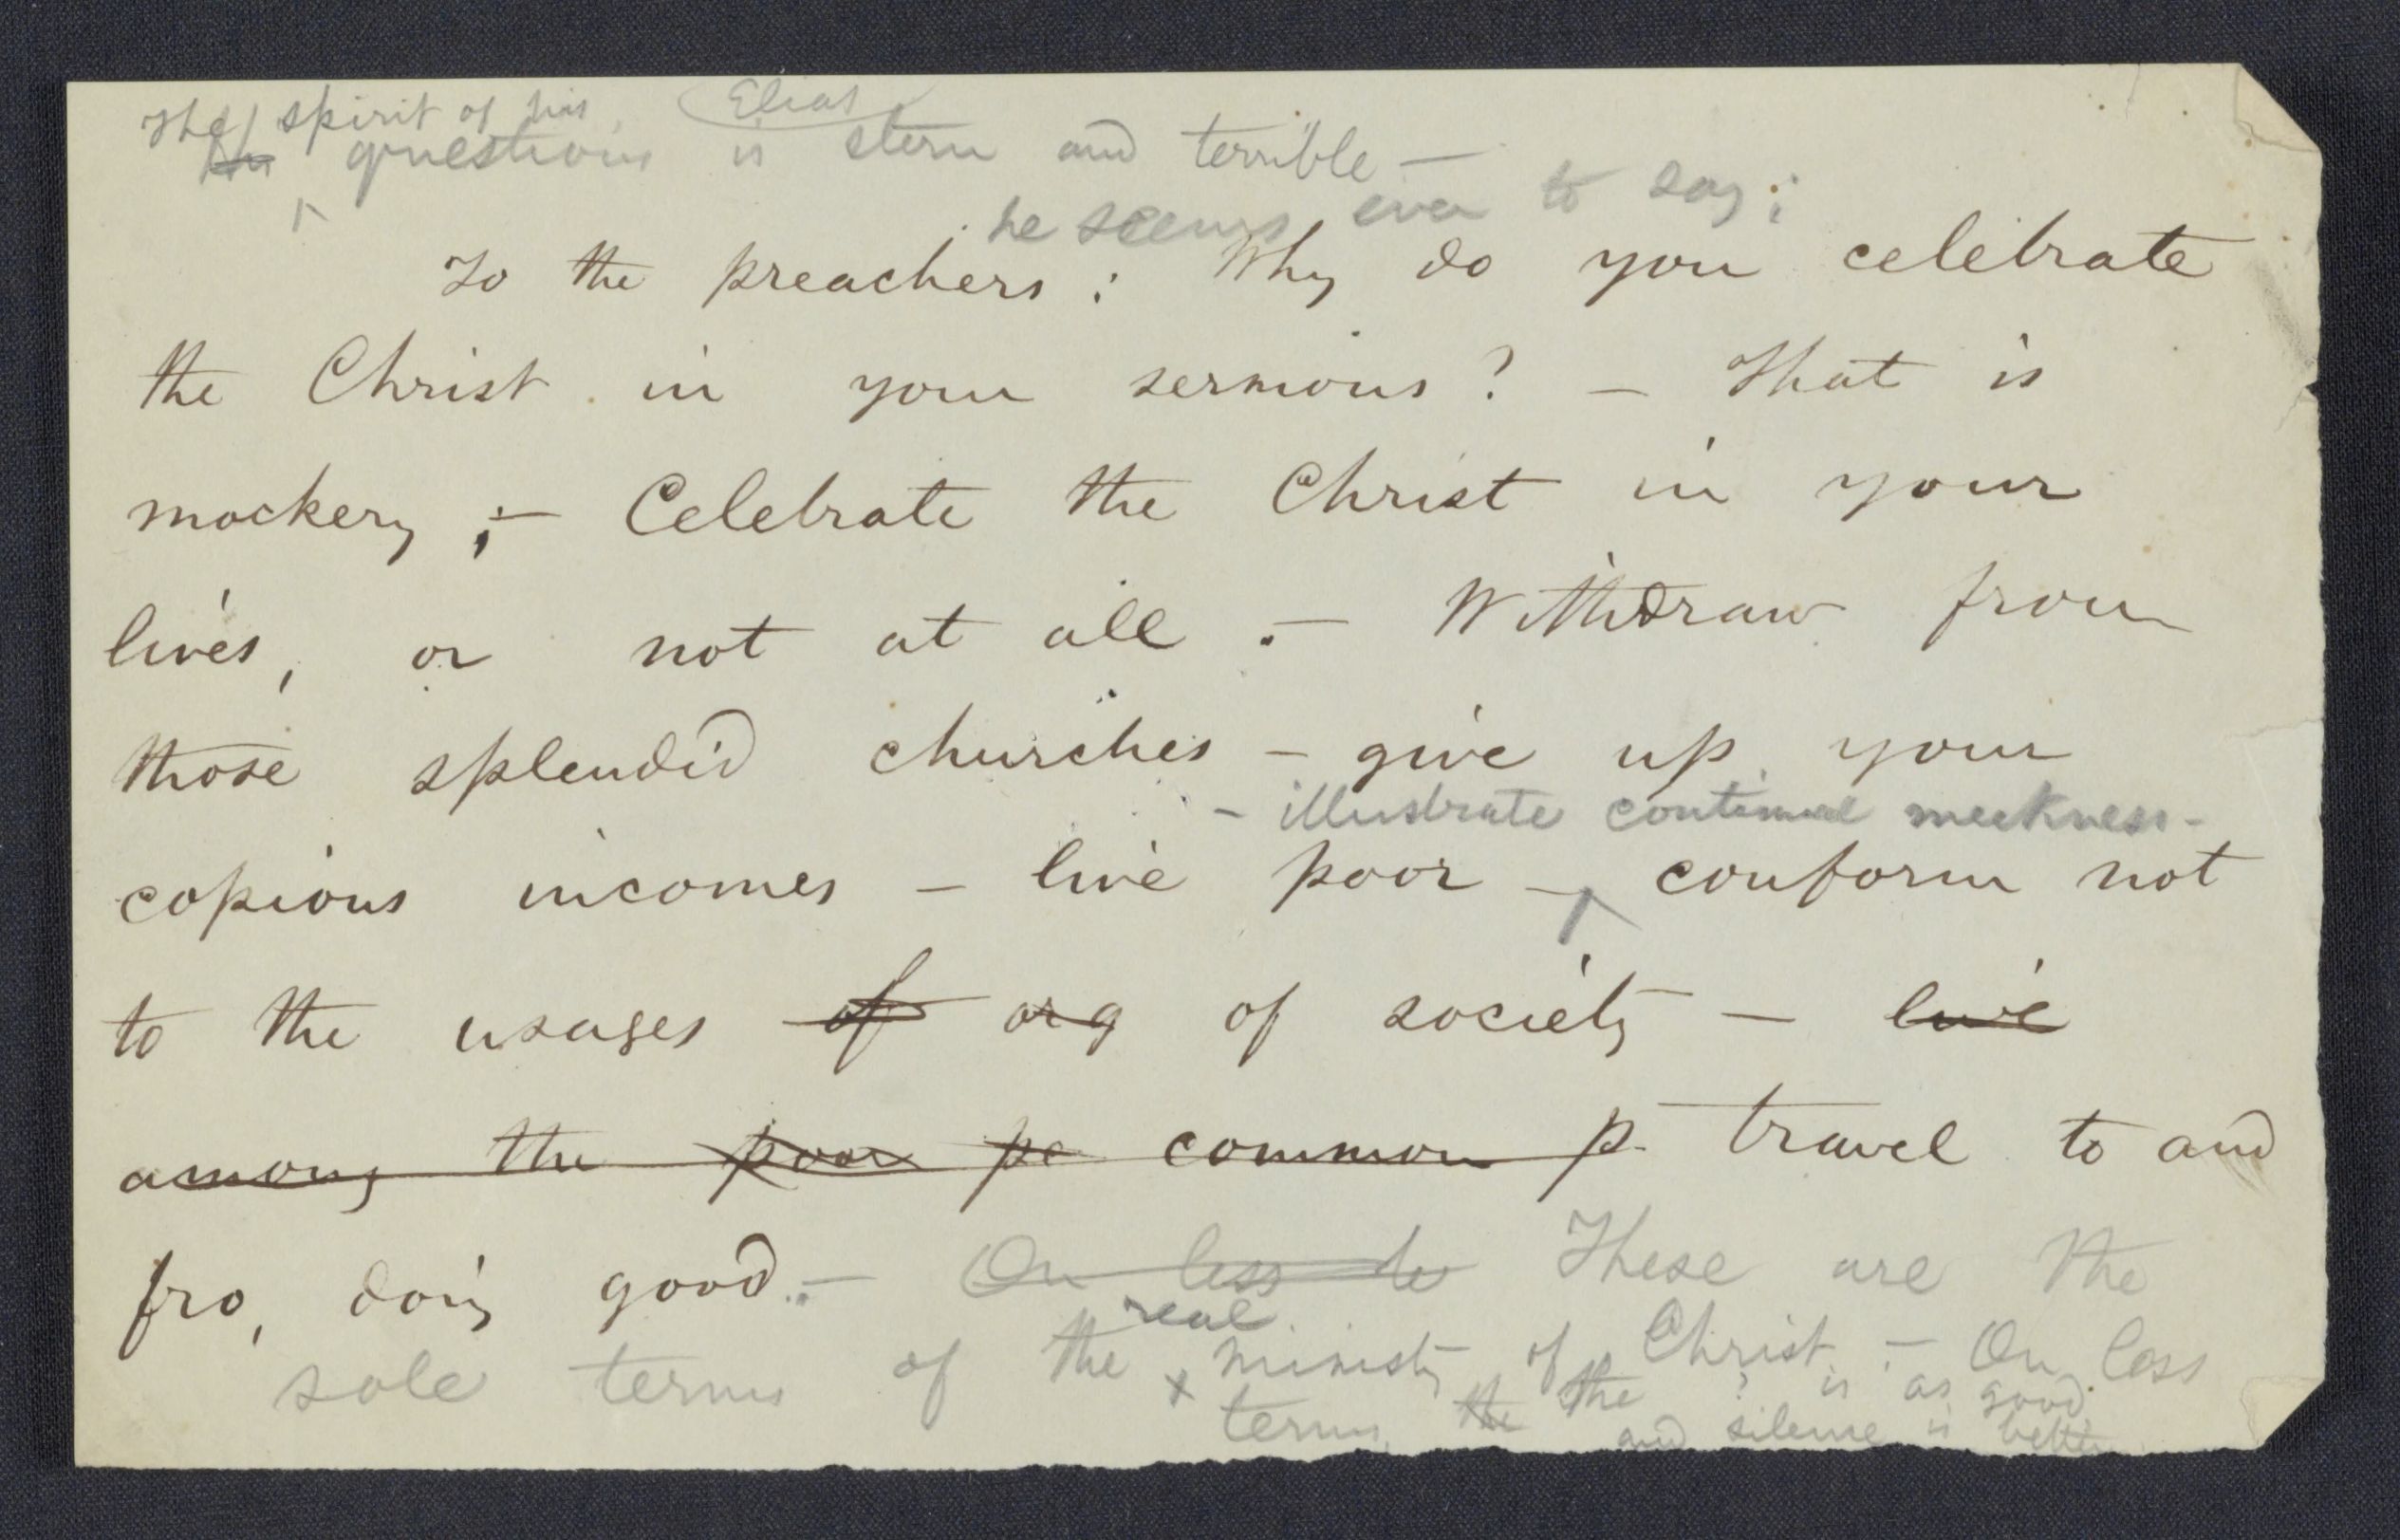 The spirit of his Elias
his questions is stern and terrible —
he seems ever to say:
To the preachers: Why do you celebrate
the Christ in your sermons? — That is
mockery ;— Celebrate the Christ in your
lives, or not at all.— Withdraw from
those splendid churches — give up your
— illustrate continual meekness —
copious incomes — live poor — conform not
to the usages of org of society — live
among the poor pe common p. travel to and
fro, doing good.— On less te These are the
real
sole terms of the ministry of Christ.— On less
terms, the the ? is as good
and silence is better